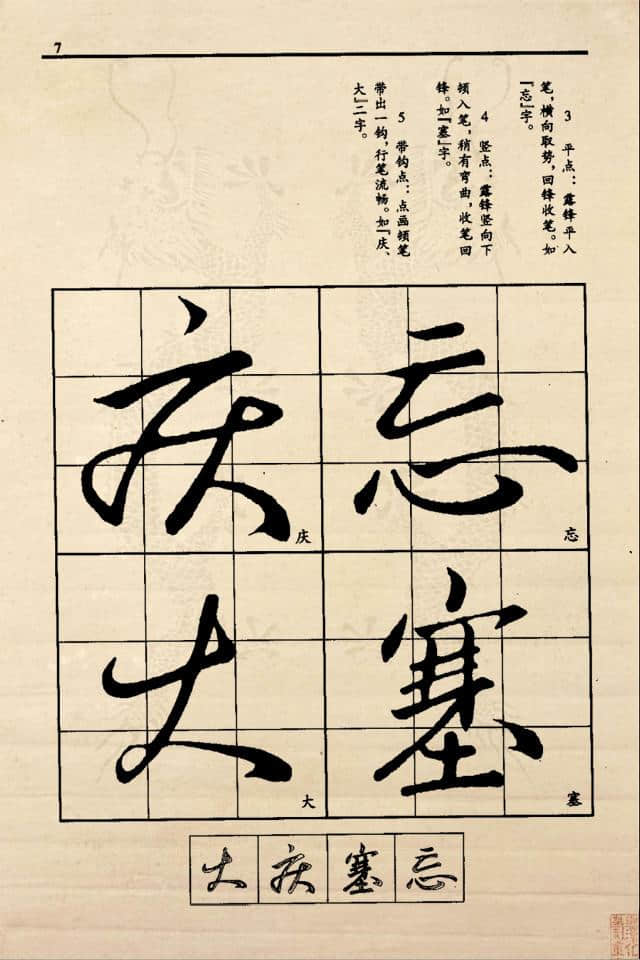 7
3 平点：露锋平入
笔，横向取势，回锋收笔。如
『忘』字。
4 竖点：露锋竖向下
顿入笔，稍有弯曲，收笔回
锋。如『塞』字。
5 带钩点：点画顿笔
带出一钩，行笔流畅。如『庆、
大』二字。
忘
忘
塞
塞
庆
庆
大
大
忘
塞
庆
大